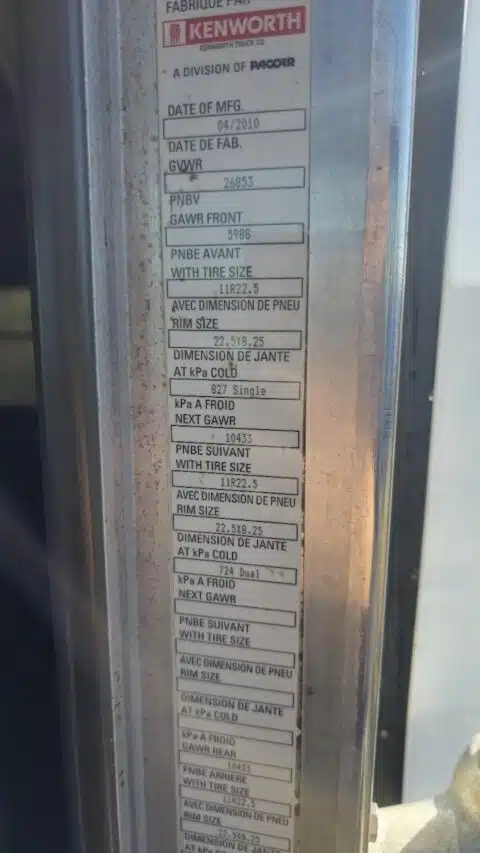 FABRIQUÉ PAR
KENWORTH
KENWORTH TRUCK CO
A DIVISION OF PACCAR
DATE OF MFG.
04/2010
DATE DE FAB.
GVWR
26853
PNBV
GAWR FRONT
5988
PNBE AVANT
WITH TIRE SIZE
11R22.5
AVEC DIMENSION DE PNEU
RIM SIZE
22.5X8.25
DIMENSION DE JANTE
AT kPa COLD
827 Single
kPa A FROID
NEXT GAWR
10433
PNBE SUIVANT
WITH TIRE SIZE
11R22.5
AVEC DIMENSION DE PNEU
RIM SIZE
22.5X8.25
DIMENSION DE JANTE
AT kPa COLD
724 Dual
kPa A FROID
NEXT GAWR
PNBE SUIVANT
WITH TIRE SIZE
AVEC DIMENSION DE PNEU
RIM SIZE
DIMENSION DE JANTE
AT kPa COLD
kPa A FROID
GAWR REAR
10433
PNBE ARRIERE
WITH TIRE SIZE
11R22.5
AVEC DIMENSION DE PNEU
RIM SIZE
22.5X8.25
DIMENSION DE JANTE
AT kPa COLD